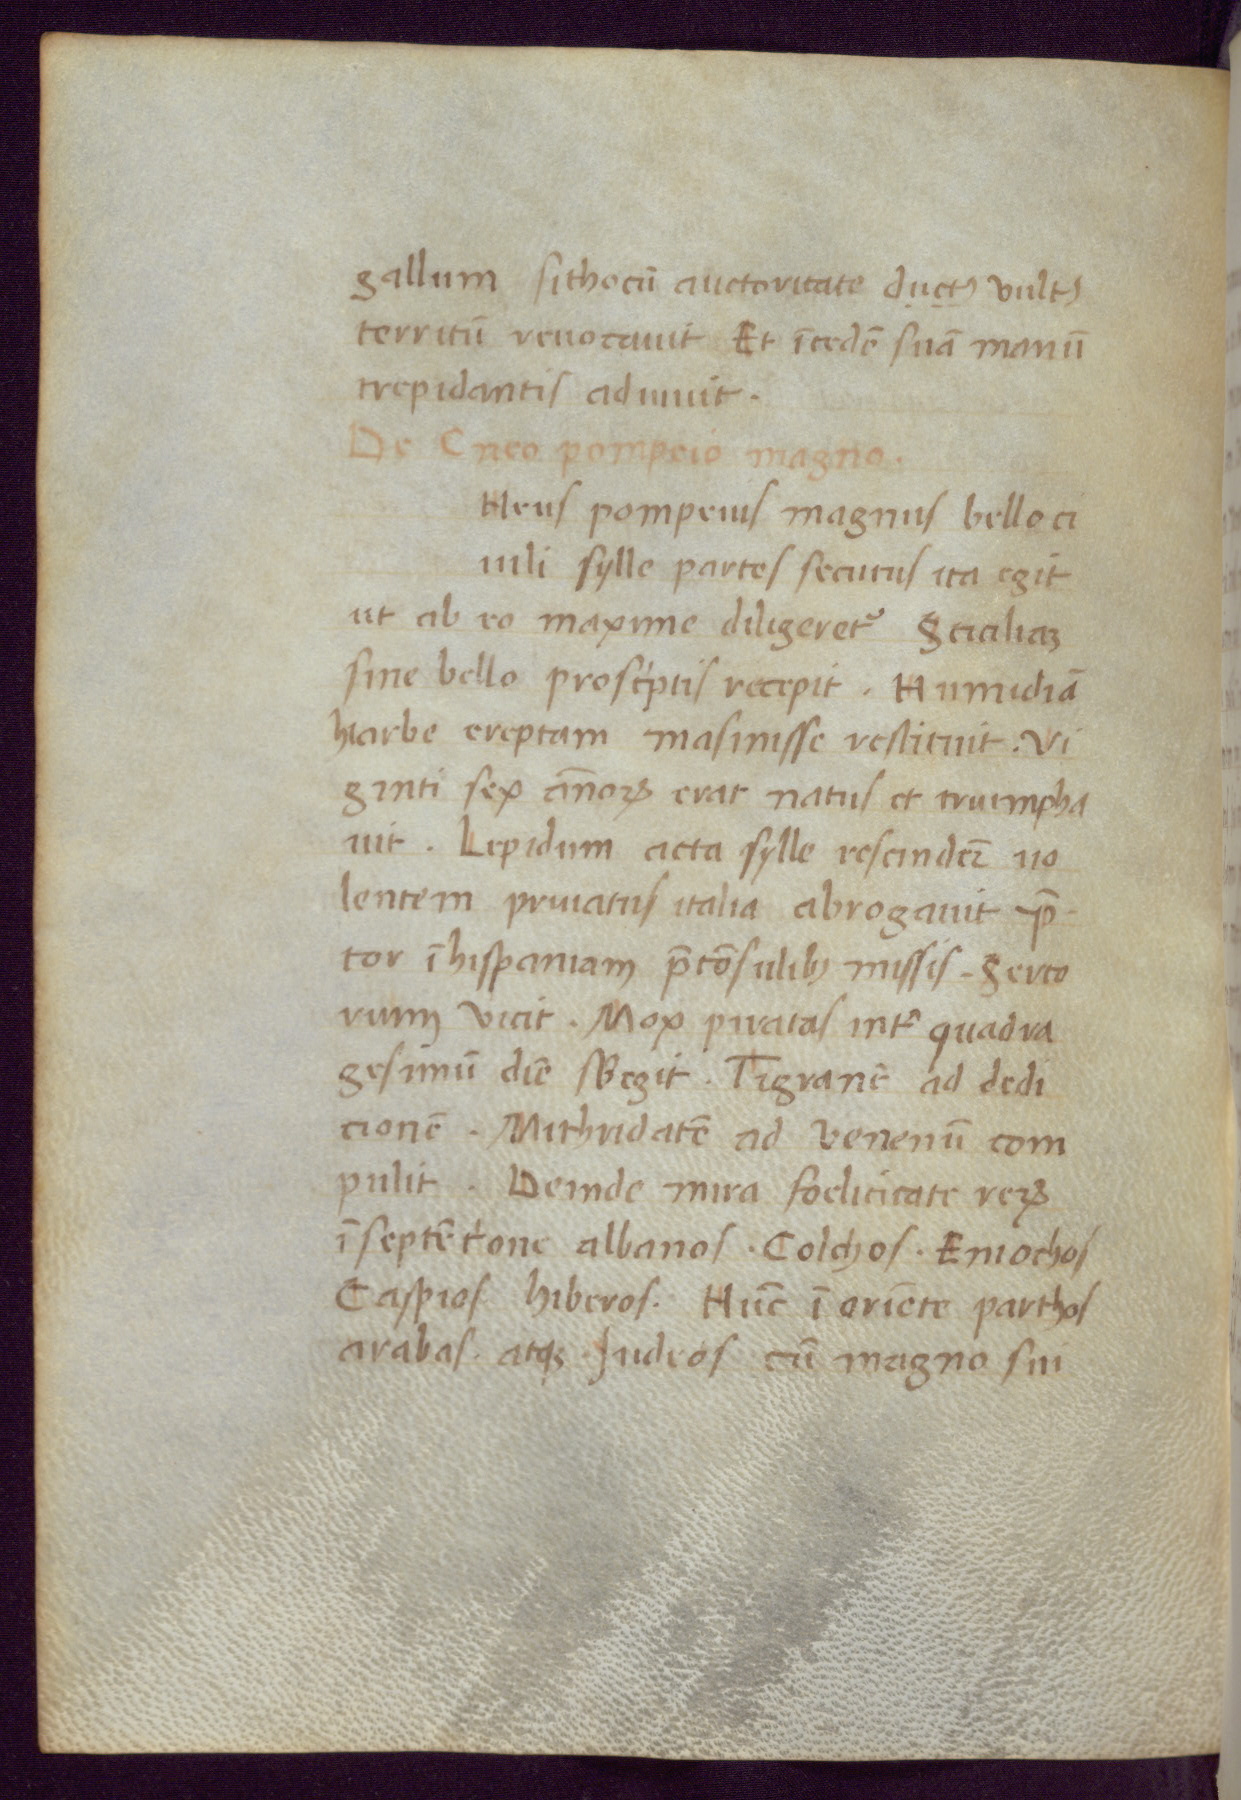 gallum sithocū auctoritate ductꝰ vultꝰ
territū reuocauit Et ī cedē suā manū
trepidantis adiuuit.
De Cneo pompeio magno.
Neus pompeius magnus bello ci
uili sylle partes secutus ita egit
ut ab eo maxime diligeretᷣ Siciliaꝫ
sine bello proscͥptis recepit. Numidiā
hiarbe ereptam masinisse restituit. Vi
ginti sex ānoꝝ erat natus et triumpha
uit. Lepidum acta sylle rescinder̄ uo
lentem priuatus italia abrogauit p̄
tor ī hispaniam p̄cōsulibꝰ missis. Serto
rium vicit. Mox piratas intᷣ quadra
gesimū diē sꝰegit. Tigranē ad dedi
cionē. Mithridatē ad venenū com
pulit. Deinde mira foelicitate reꝝ
ī septētͥone albanos. Colchos. Eniochos
Caspios hiberos. Nūc ī oriēte parthos
arabas. atqꝫ Judeos cū magno sui